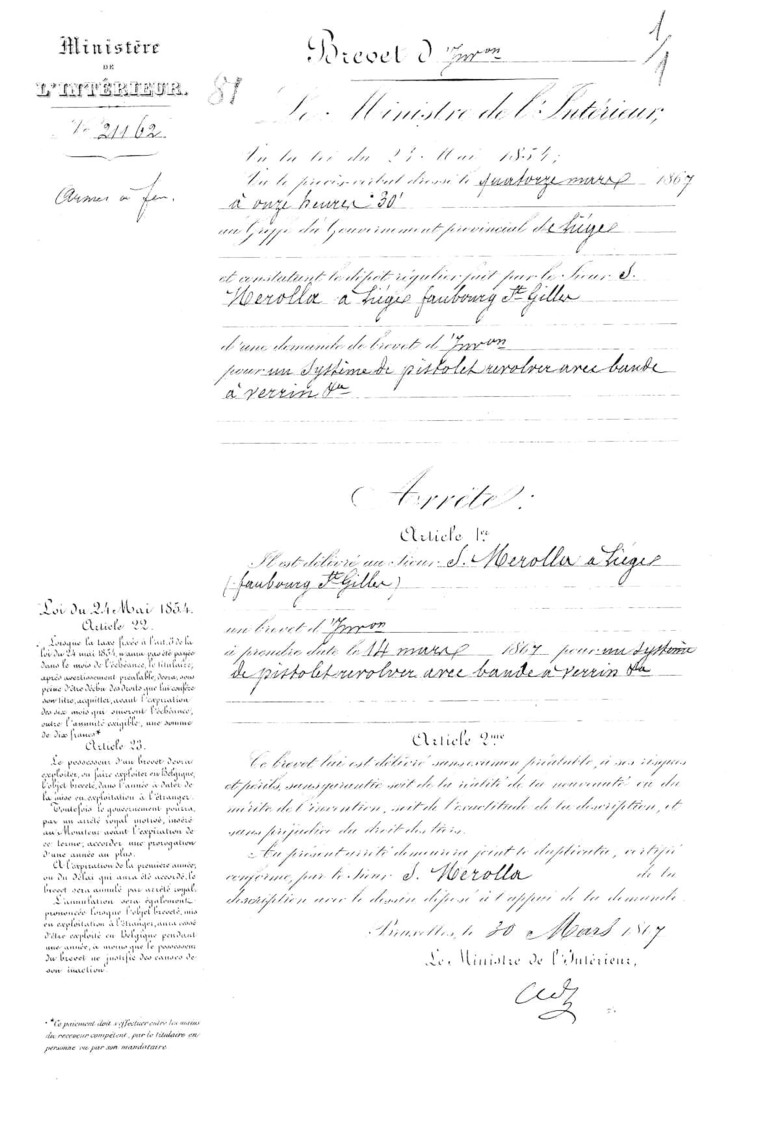 Ministère
DE
L'INTÉRIEUR.
Nº 21162
Armes à feu.
Brevet d'Inv^on
1/1
81
Le Ministre de l'Intérieur,
Vu la loi du 24 Mai 1854;
Vu le procès-verbal dressé le quatorze mars 1867
à onze heures 30'
au Greffe du Gouvernement provincial de Liége
et constatant le dépôt régulier fait par le Sieur S.
Merolla à Liége faubourg St Gilles
d'une demande de brevet d'Inv^on
pour un système de pistolet revolver avec bande
à verrin &a
Arrête:
Article 1er
Il est délivré au Sieur S. Merolla à Liége
(faubourg St Gilles)
un brevet d'Inv^on
à prendre date le 14 mars 1867 pour un système
de pistolet revolver avec bande à verrin &a
Article 2me
Ce brevet lui est délivré sans examen préalable, à ses risques
et périls, sans garantie soit de la réalité de la nouveauté ou du
mérite de l'invention, soit de l'exactitude de la description, et
sans préjudice du droit des tiers.
Au présent arrêté demeurera joint le duplicata, certifié
conforme, par le Sieur S. Merolla de la
description avec le dessin déposé à l'appui de la demande.
Bruxelles, le 30 Mars 1867
Le Ministre de l'Intérieur,
Loi du 24 Mai 1854.
Article 22.
Lorsque la taxe fixée à l'art. 3 de la
loi du 24 mai 1854, n'aura pas été payée
dans le mois de l'échéance, le titulaire,
après avertissement préalable, devra, sous
peine d'être déchu des droits que lui confère
son titre, acquitter, avant l'expiration
des six mois qui suivront l'échéance,
outre l'annuité exigible, une somme
de dix francs*
Article 23.
Le possesseur d'un brevet devra
exploiter, ou faire exploiter en Belgique,
l'objet breveté, dans l'année à dater de
la mise en exploitation à l'étranger.
Toutefois le gouvernement pourra,
par un arrêté royal motivé, inséré
au Moniteur avant l'expiration de
ce terme, accorder une prorogation
d'une année au plus.
A l'expiration de la première année,
ou du délai qui aura été accordé, le
brevet sera annulé par arrêté royal.
L'annulation sera également
prononcée lorsque l'objet breveté, mis
en exploitation à l'étranger, aura cessé
d'être exploité en Belgique pendant
une année, à moins que le possesseur
du brevet ne justifie des causes de
son inaction.
* Ce paiement doit s'effectuer entre les mains
du receveur compétent, par le titulaire en
personne ou par son mandataire.